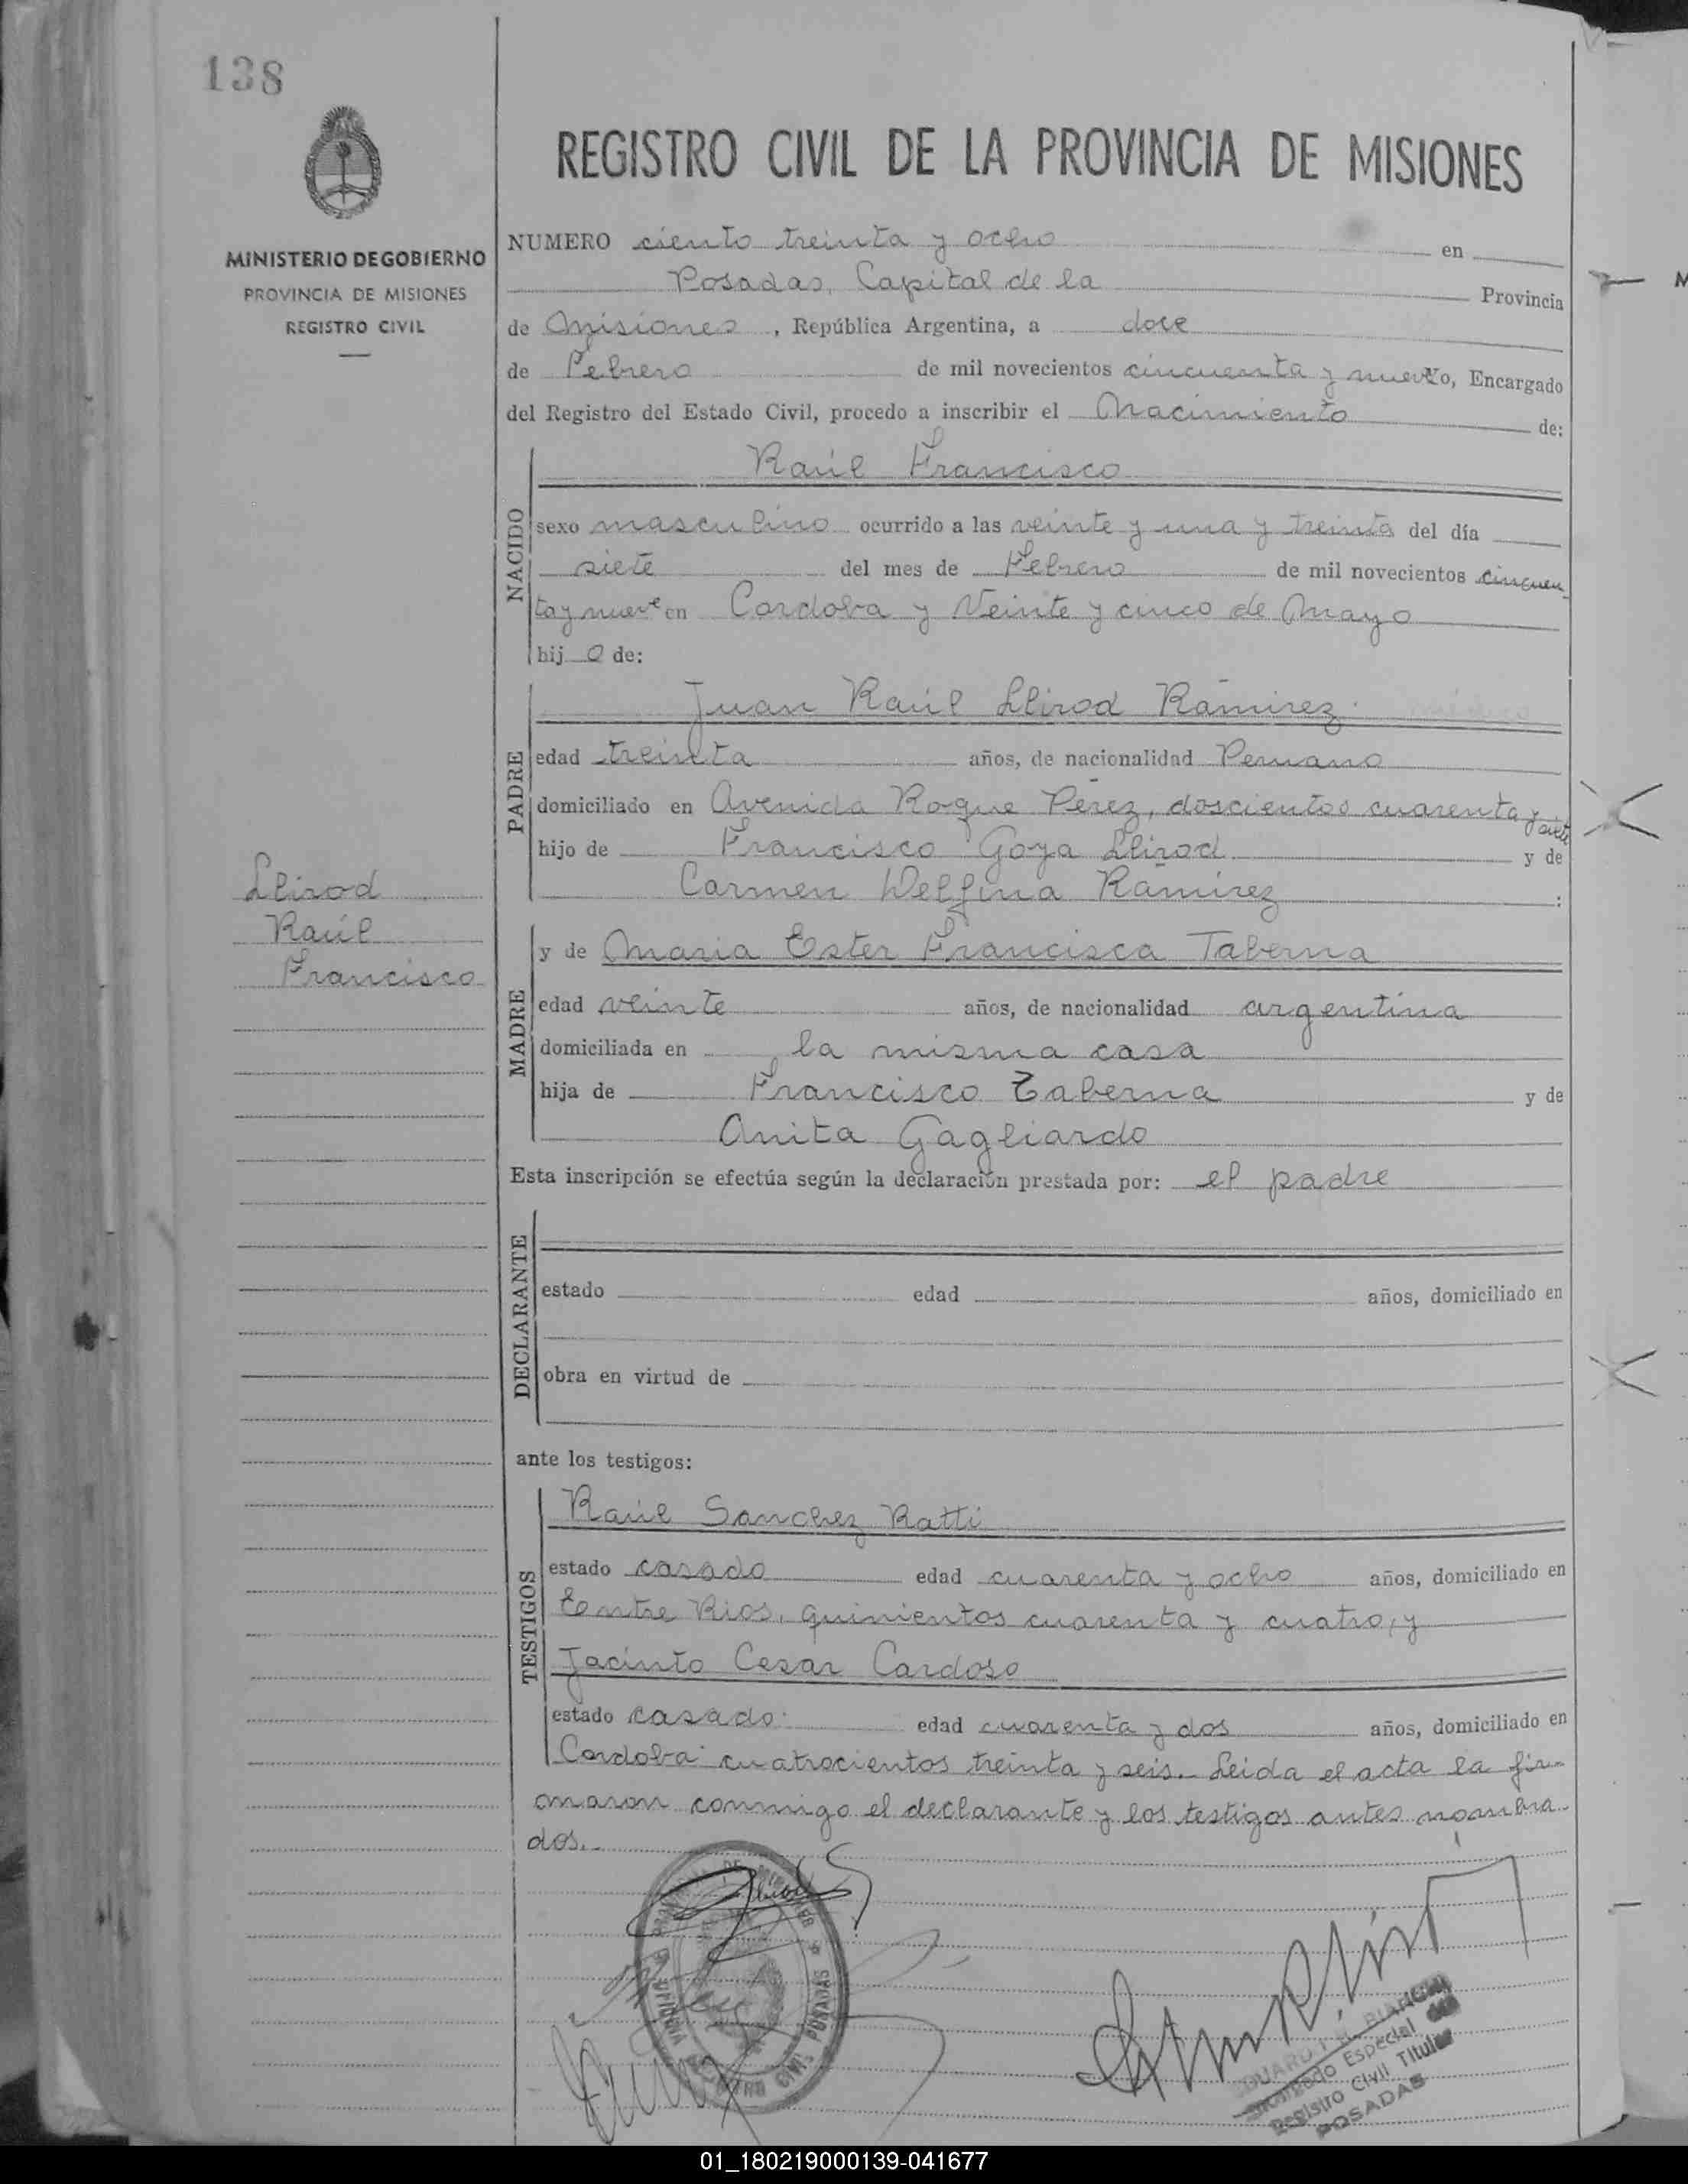 138
REGISTRO CIVIL DE LA PROVINCIA DE MISIONES
MINISTERIO DE GOBIERNO
PROVINCIA DE MISIONES
REGISTRO CIVIL
NUMERO ciento treinta y ocho en
Posadas, Capital de la Provincia
de Misiones, República Argentina, a doce
de Febrero de mil novecientos cincuenta y nueve Yo, Encargado
del Registro del Estado Civil, procedo a inscribir el Nacimiento de:
NACIDO
Raúl Francisco
sexo masculino ocurrido a las veinte y una y treinta del día
siete del mes de Febrero de mil novecientos cincuen
ta y nueve en Cordoba y Veinte y cinco de Mayo
hij o de:
PADRE
Juan Raúl Llirod Ramirez
edad treinta años, de nacionalidad Peruano
domiciliado en Avenida Roque Perez, doscientos cuarenta y siete
hijo de Francisco Goya Llirod y de
Carmen Delfina Ramirez :
Llirod
Raúl
Francisco
MADRE
y de Maria Ester Francisca Taberna
edad veinte años, de nacionalidad argentina
domiciliada en la misma casa
hija de Francisco Taberna y de
Anita Gagliardo
Esta inscripción se efectúa según la declaración prestada por: el padre
DECLARANTE
estado edad años, domiciliado en
obra en virtud de
ante los testigos:
TESTIGOS
Raúl Sanchez Ratti
estado casado edad cuarenta y ocho años, domiciliado en
Entre Rios, quinientos cuarenta y cuatro, y
Jacinto Cesar Cardoso
estado casado edad cuarenta y dos años, domiciliado en
Cordoba cuatrocientos treinta y seis. Leida el acta la fir-
maron conmigo el declarante y los testigos antes nombra
dos.-
Encargado Especial del
Registro Civil Titular
POSADAS
01_180219000139-041677